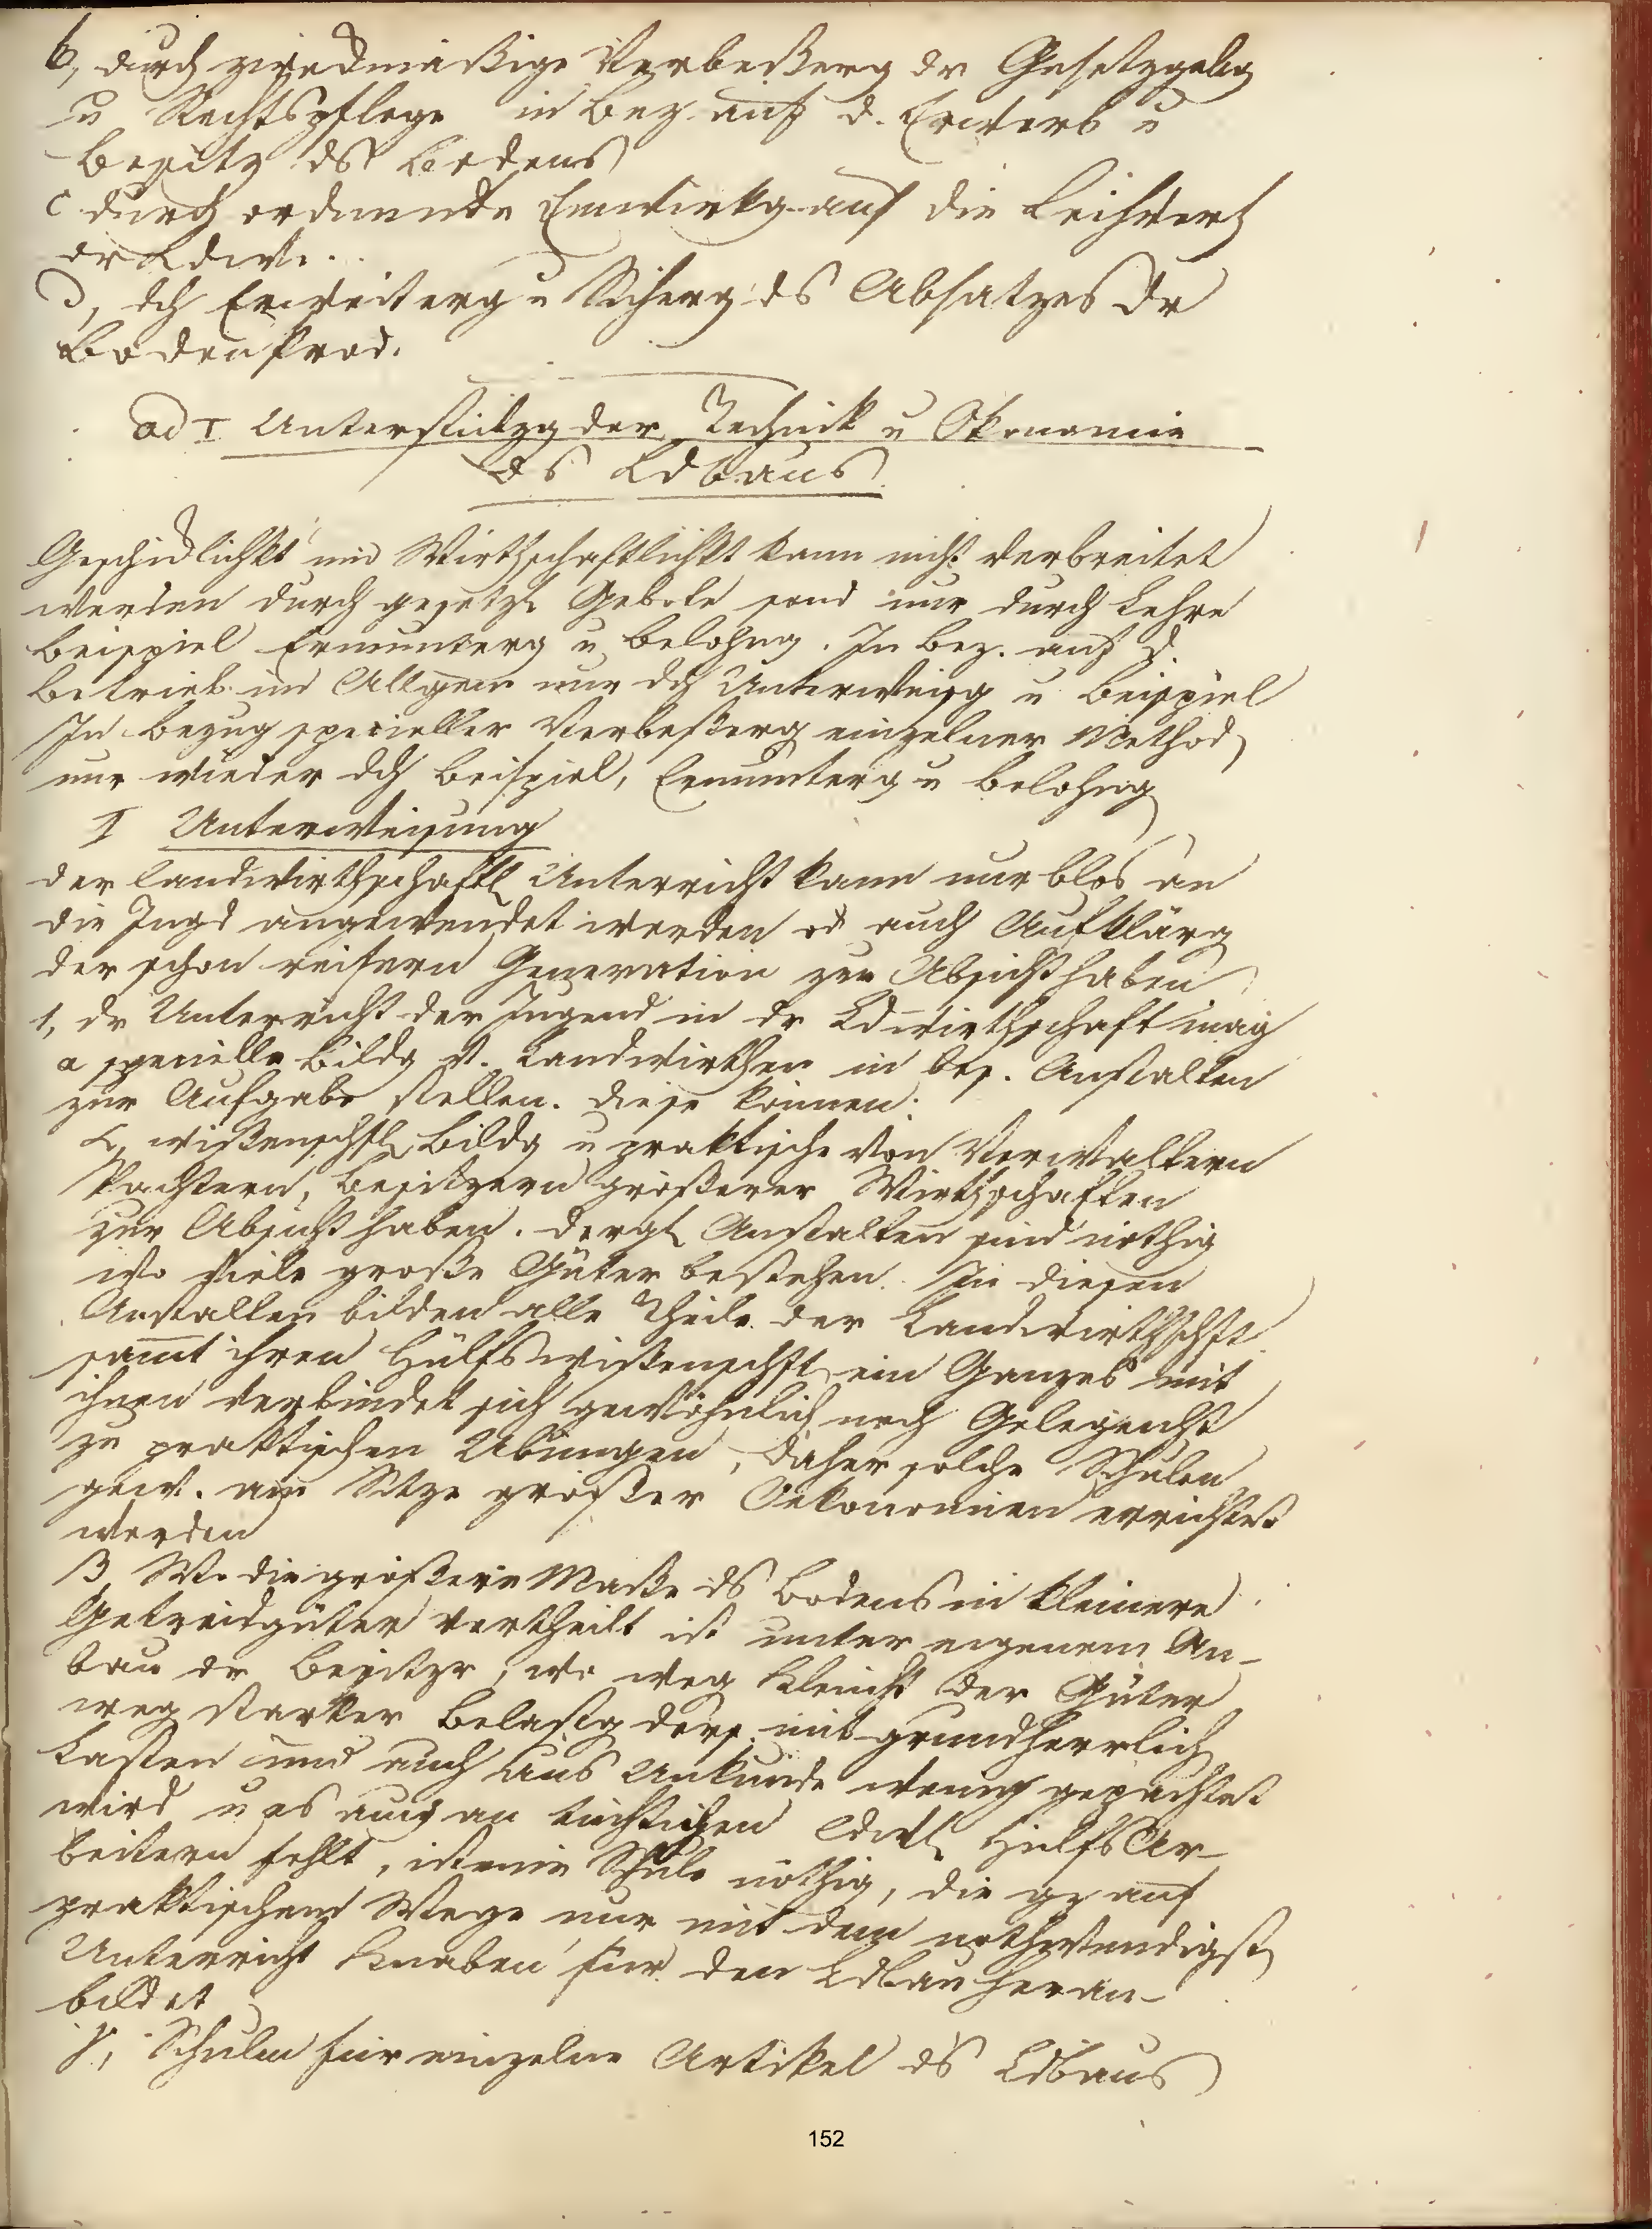 b, durch zweckmäßige Verbeßerg dr Gesetzgebg
u Rechtspflege in Bez. auf d. Erwerb u
Besitz ds Bodens
c durch ordnende Einwirkg auf die
dr Ldw.
d, dch Erweiterg u Sicherg ds Absatzes dr
Bodenprod.
ad I Unterstützg der Technick u Okonomie
ds Ldbaus
Geschicklichkt und Wirthschaftlichkt kann nicht verbreitet
werden durch gesetzl Gebote sond nur durch Lehre
Beispiel Ermunterg u Belohng. In Bez. auf d.
Betrieb im Allgem nur dch Unterweisg u Beispiel
In Bezug specieller Verbeßerg einzelner Method
nur wieder dch Beispiel, Ermunterg u Belohng
I Unterweisung
der landwirthschaftl Unterricht kann nur blos an
die Jugd angewendet werden od auch Aufklärg
der schon reifern Generation zur Absicht haben
1, dr Unterricht der Jugend in dr Ldwirthschaft mag
a specielle Bildg v. Landwirthen in bes. Anstalten
zur Aufgabe stellen. diese können:
α, wißenschftl Bildg u praktische von Verwaltern
Pachtern, Besitzern größerer Wirthschaften
zur Absicht haben. dergl Anstalten sind nöthig
wo viele große Güter bestehen. In diesen
Anstalten bilden alle Theile der Landwirthschft
samt ihren Hülfswißenschft ein Ganzes mit
ihnen verbindet sich gewöhnlich noch Gelegenht
zu praktischen Übungen, daher solche Schulen
gew. am Sitze großer Oekonomien errichtet
werden
β, Wo die größere Maße ds Bodens in kleinere
Getreidgüter vertheilt ist unter eigenem An-
bau dr Besitzr, wo weg Kleinht der Güter
weg starker Belastg ders. mit grundherrlich
Lasten und auch aus Unkunde wenig gepachtet
wird u es auch an tüchtigen ldwl HülfsAr-
beitern fehlt, ist eine Schule nöthig, die gz auf
praktischem Wege nur mit dem nothwendigst
Unterricht Knaben für den Ldbau heran-
bildet
γ, Schulen für einzelne Artikel ds Ldbaus
152